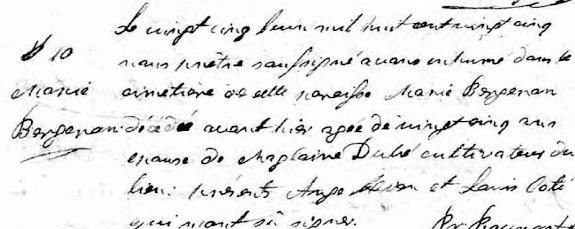 S 10
Marie
Bergeran
Le vingt cinq mil huit cent vingt cinq
nous prêtre soussigné avons inhumé dans le
cimetière de cette paroisse Marie Bergeran
décédée avant hier agée de vingt cinq ans
epouse de Dubé cultivateur du
lieu: présents Ange et Louis Coté
qui n'ont sû signer.